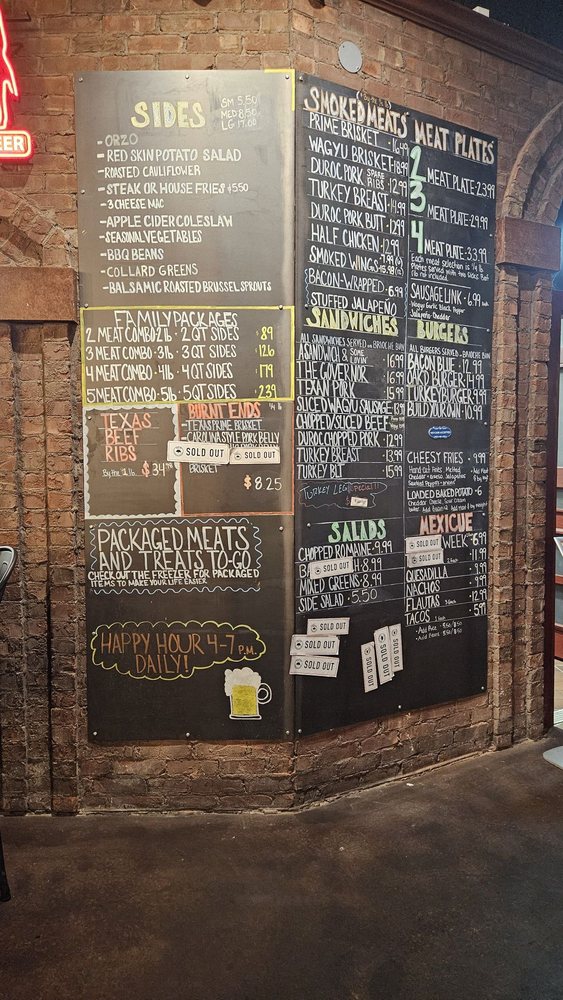 BEER
SIDES
SM 5.50
MED 8.50
LG 17.00
- ORZO
- RED SKIN POTATO SALAD
- ROASTED CAULIFLOWER
- STEAK OR HOUSE FRIES +5.50
- 3 CHEESE MAC
- APPLE CIDER COLESLAW
- SEASONAL VEGETABLES
- BBQ BEANS
- COLLARD GREENS
- BALSAMIC ROASTED BRUSSEL SPROUTS
FAMILY PACKAGES
2 MEAT COMBO 2 lb · 2 QT SIDES $89
3 MEAT COMBO · 3 lb · 3 QT SIDES $126
4 MEAT COMBO · 4 lb · 4 QT SIDES $179
5 MEAT COMBO · 5 lb · 5 QT SIDES $239
TEXAS
BEEF
RIBS
By the
$34
BURNT ENDS 1/4 lb
- TEXAS PRIME BRISKET
- CAROLINA STYLE PORK BELLY
SOLD OUT
SOLD OUT
BRISKET
$8.25
PACKAGED MEATS
AND TREATS TO-GO
CHECK OUT THE FREEZER FOR PACKAGED
ITEMS TO MAKE YOUR LIFE EASIER
HAPPY HOUR 4-7 P.M.
DAILY!
SMOKED MEATS
PRIME BRISKET · 16.49
WAGYU BRISKET 18.99
DUROC PORK SPARE RIBS · 12.99
TURKEY BREAST 14.99
DUROC PORK BUTT 12.99
HALF CHICKEN · 12.99
SMOKED WINGS
BACON-WRAPPED · 6.99
STUFFED JALAPEÑO
MEAT PLATES
2 MEAT PLATE · 23.99
3 MEAT PLATE · 29.99
4 MEAT PLATE · 33.99
Each meat selection is 1/4 lb
Plates served with two sides
Rib not included
SAUSAGE LINK · 6.99
Wagyu Garlic Black Pepper
Jalapeño Cheddar
SANDWICHES
ALL SANDWICHES SERVED ON BRIOCHE BUN
A SANDWICH & SOME LOVIN' 16.99
THE GOVERNOR 16.99
TEXAN PORK 15.99
SLICED WAGYU SAUSAGE
CHOPPED/SLICED BEEF
DUROC CHOPPED PORK · 12.99
TURKEY BREAST · 13.99
TURKEY BLT · 15.99
TURKEY LEG
BURGERS
ALL BURGERS SERVED ON BRIOCHE BUN
BACON BLUE · 12.99
OAKD BURGER · 14.99
TURKEY BURGER · 9.99
BUILD YOUR OWN · 10.99
CHEESY FRIES · 9.99
LOADED BAKED POTATO · 6
Cheddar Cheese, Sour Cream
SALADS
CHOPPED ROMAINE · 9.99
SOLD OUT
MIXED GREENS · 8.99
SIDE SALAD · 5.50
MEXICUE
SOLD OUT
WEEK · 6.99
SOLD OUT
11.99
QUESADILLA 9.99
NACHOS 9.99
FLAUTAS 12.99
TACOS 5.99
- Add Rice
- Add Beans
SOLD OUT
SOLD OUT
SOLD OUT
SOLD OUT
SOLD OUT
SOLD OUT